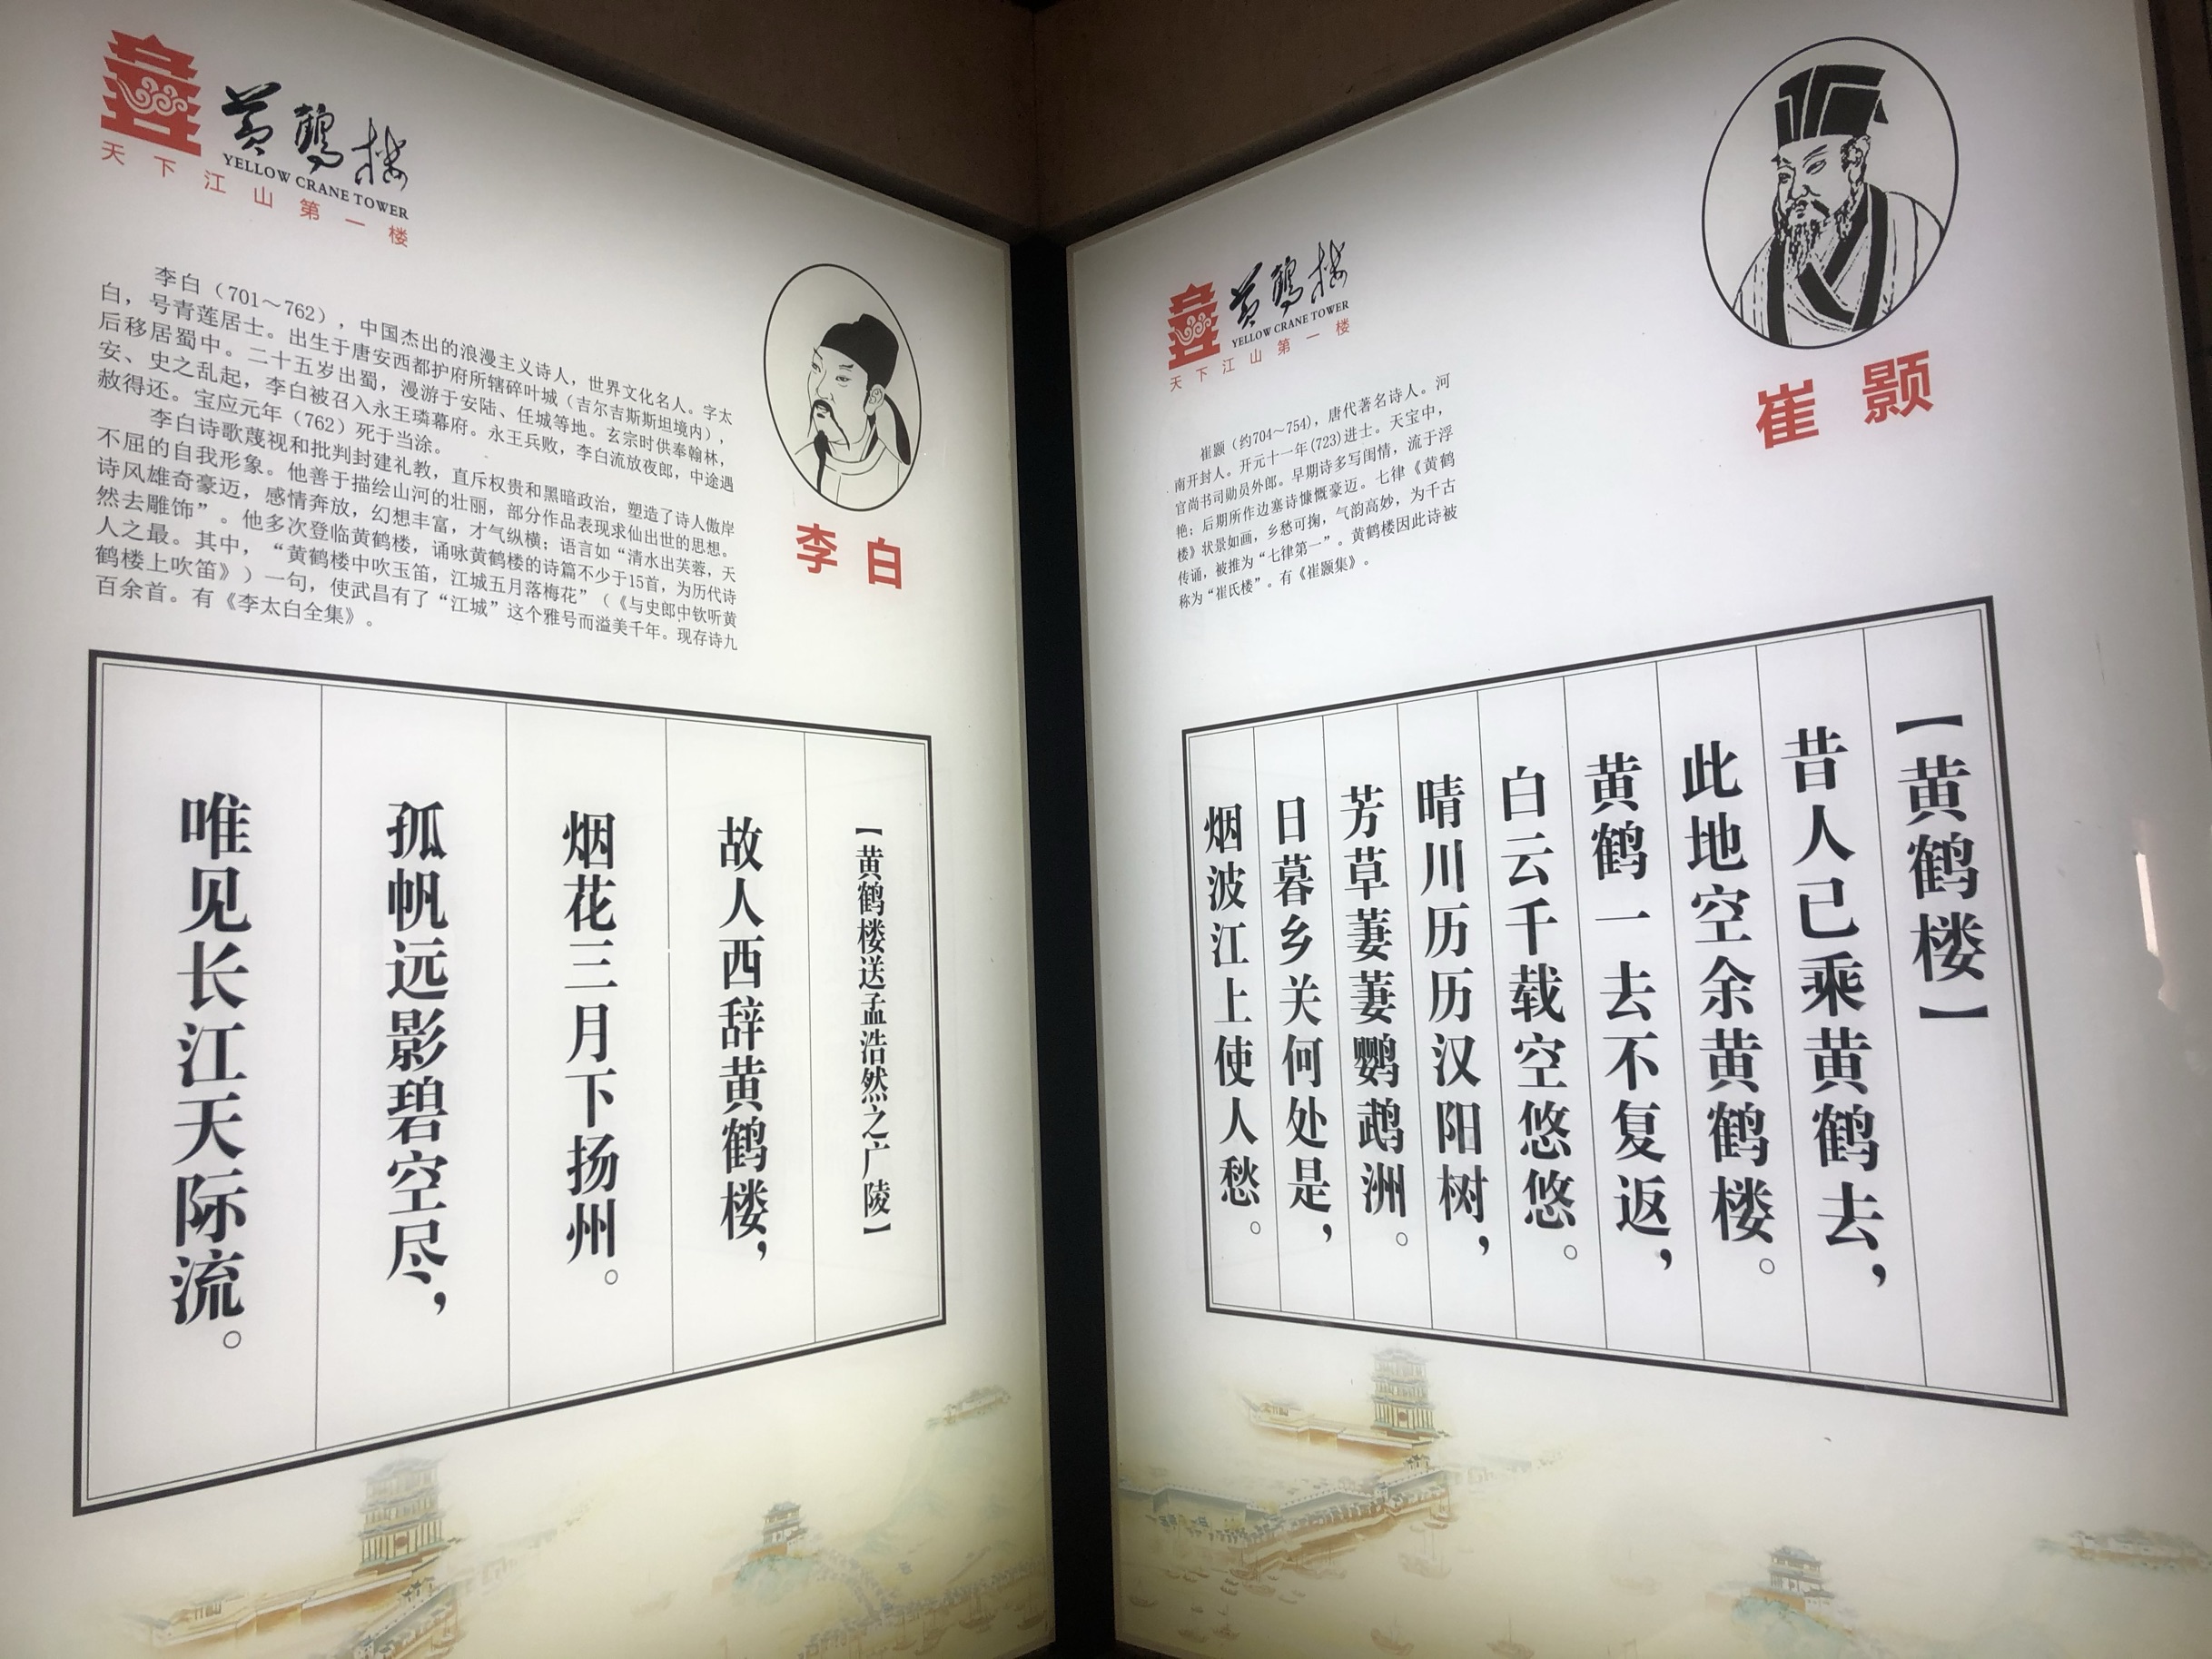 黄鹤楼
YELLOW CRANE TOWER
天下江山第一楼
李白（701～762），中国杰出的浪漫主义诗人，世界文化名人。字太
白，号青莲居士。出生于唐安西都护府所辖碎叶城（吉尔吉斯斯坦境内），
后移居蜀中。二十五岁出蜀，漫游于安陆、任城等地。玄宗时供奉翰林，
安、史之乱起，李白被召入永王璘幕府。永王兵败，李白流放夜郎，中途遇
赦得还。宝应元年（762）死于当涂。
李白诗歌蔑视和批判封建礼教，直斥权贵和黑暗政治，塑造了诗人傲岸
不屈的自我形象。他善于描绘山河的壮丽，部分作品表现求仙出世的思想。
诗风雄奇豪迈，感情奔放，幻想丰富，才气纵横；语言如“清水出芙蓉，天
然去雕饰”。他多次登临黄鹤楼，诵咏黄鹤楼的诗篇不少于15首，为历代诗
人之最。其中，“黄鹤楼中吹玉笛，江城五月落梅花”（《与史郎中钦听黄
鹤楼上吹笛》）一句，使武昌有了“江城”这个雅号而溢美千年。现存诗九
百余首。有《李太白全集》。
李白
【黄鹤楼送孟浩然之广陵】
故人西辞黄鹤楼，
烟花三月下扬州。
孤帆远影碧空尽，
唯见长江天际流。
黄鹤楼
YELLOW CRANE TOWER
天下江山第一楼
崔颢（约704～754），唐代著名诗人。河
南开封人。开元十一年(723)进士。天宝中，
官尚书司勋员外郎。早期诗多写闺情，流于浮
艳；后期所作边塞诗慷慨豪迈。七律《黄鹤
楼》状景如画，乡愁可掬，气韵高妙，为千古
传诵，被推为“七律第一”。黄鹤楼因此诗被
称为“崔氏楼”。有《崔颢集》。
崔颢
【黄鹤楼】
昔人已乘黄鹤去，
此地空余黄鹤楼。
黄鹤一去不复返，
白云千载空悠悠。
晴川历历汉阳树，
芳草萋萋鹦鹉洲。
日暮乡关何处是，
烟波江上使人愁。